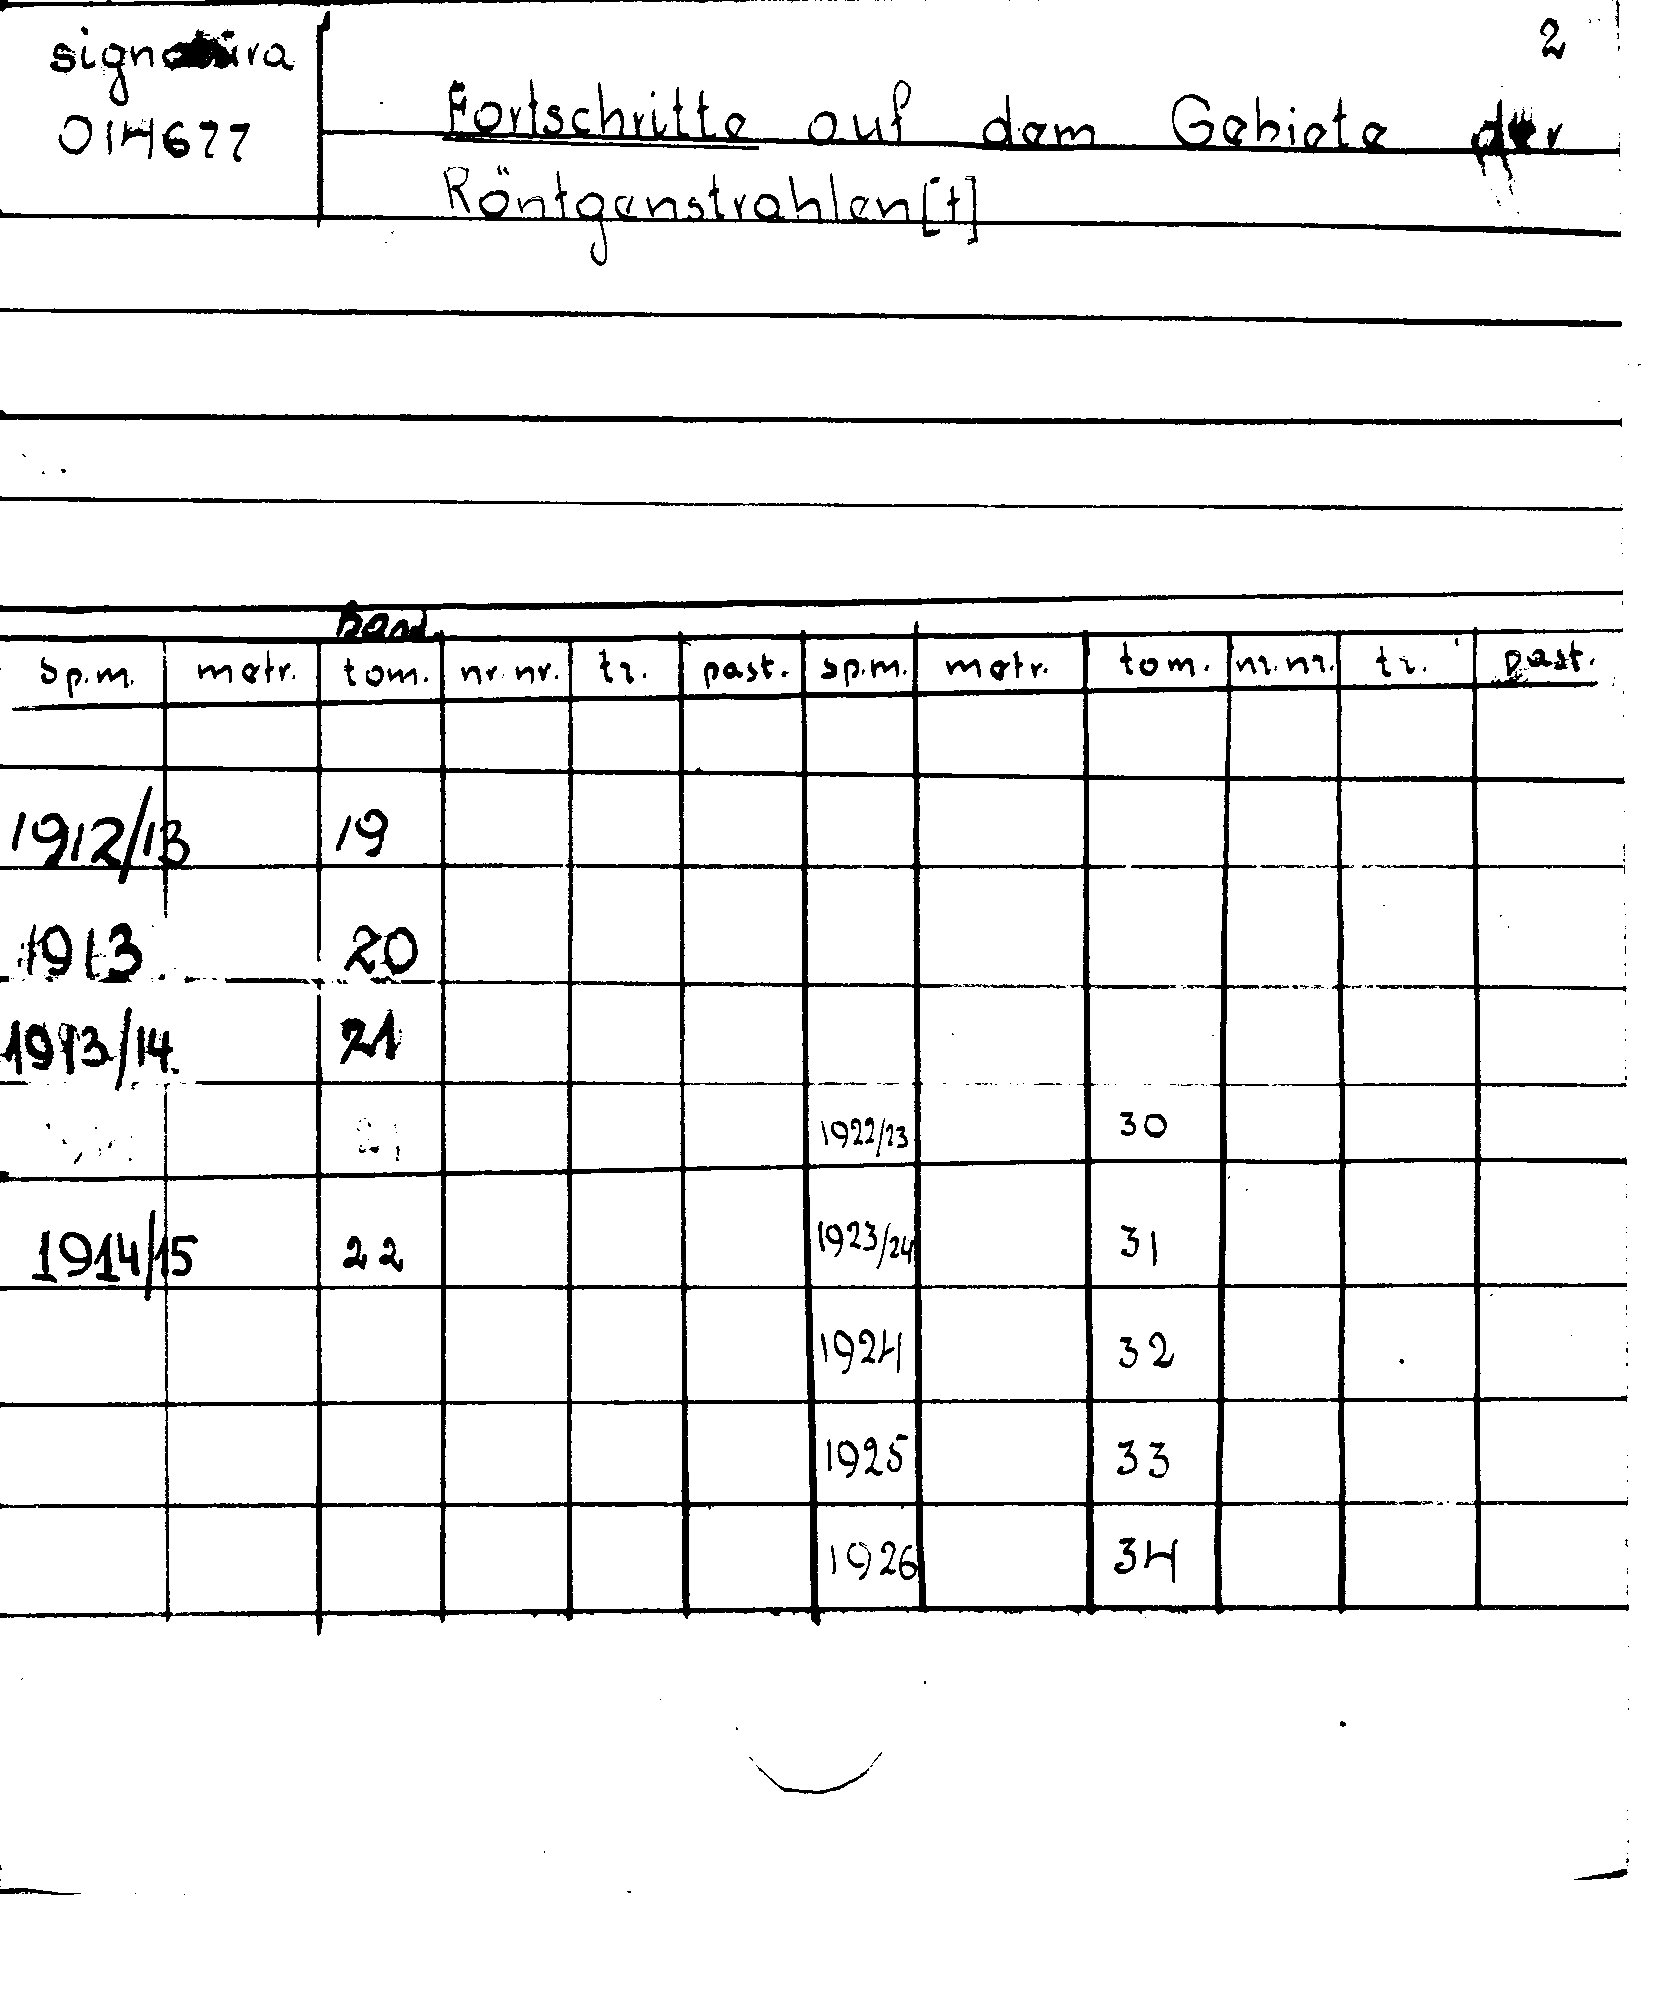 2
signatura
014677
Fortschritte auf dem Gebiete der
Röntgenstrahlen [†]
Band
sp.m. metr. tom. nr. nr. tr. past. sp.m. metr. tom. nr. nr. tr. past.
1912/13 19
1913 20
1913/14. 21
1922/23 30
1914/15 22 1923/24 31
1924 32
1925 33
1926 34